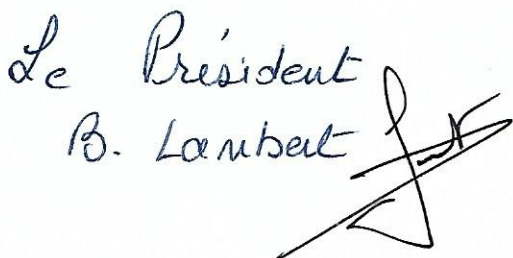 Le Président
B. Lambert